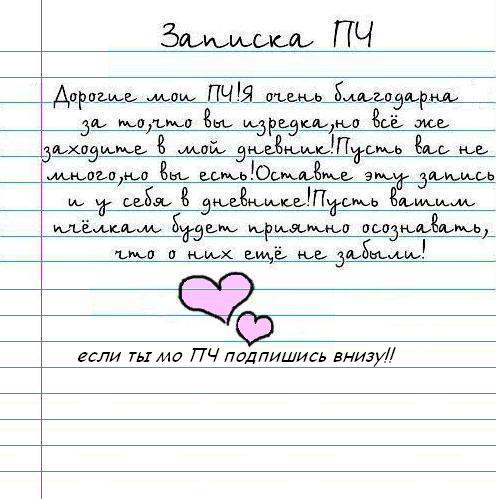 Записка ПЧ
Дорогие мои ПЧ!Я очень благодарна
за то,что вы изредка,но всё же
заходите в мой дневник!Пусть вас не
много,но вы есть!Оставте эту запись
и у себя в дневнике!Пусть вашим
пчёлкам будет приятно осознавать,
что о них ещё не забыли!
если ты мо ПЧ подпишись внизу!!